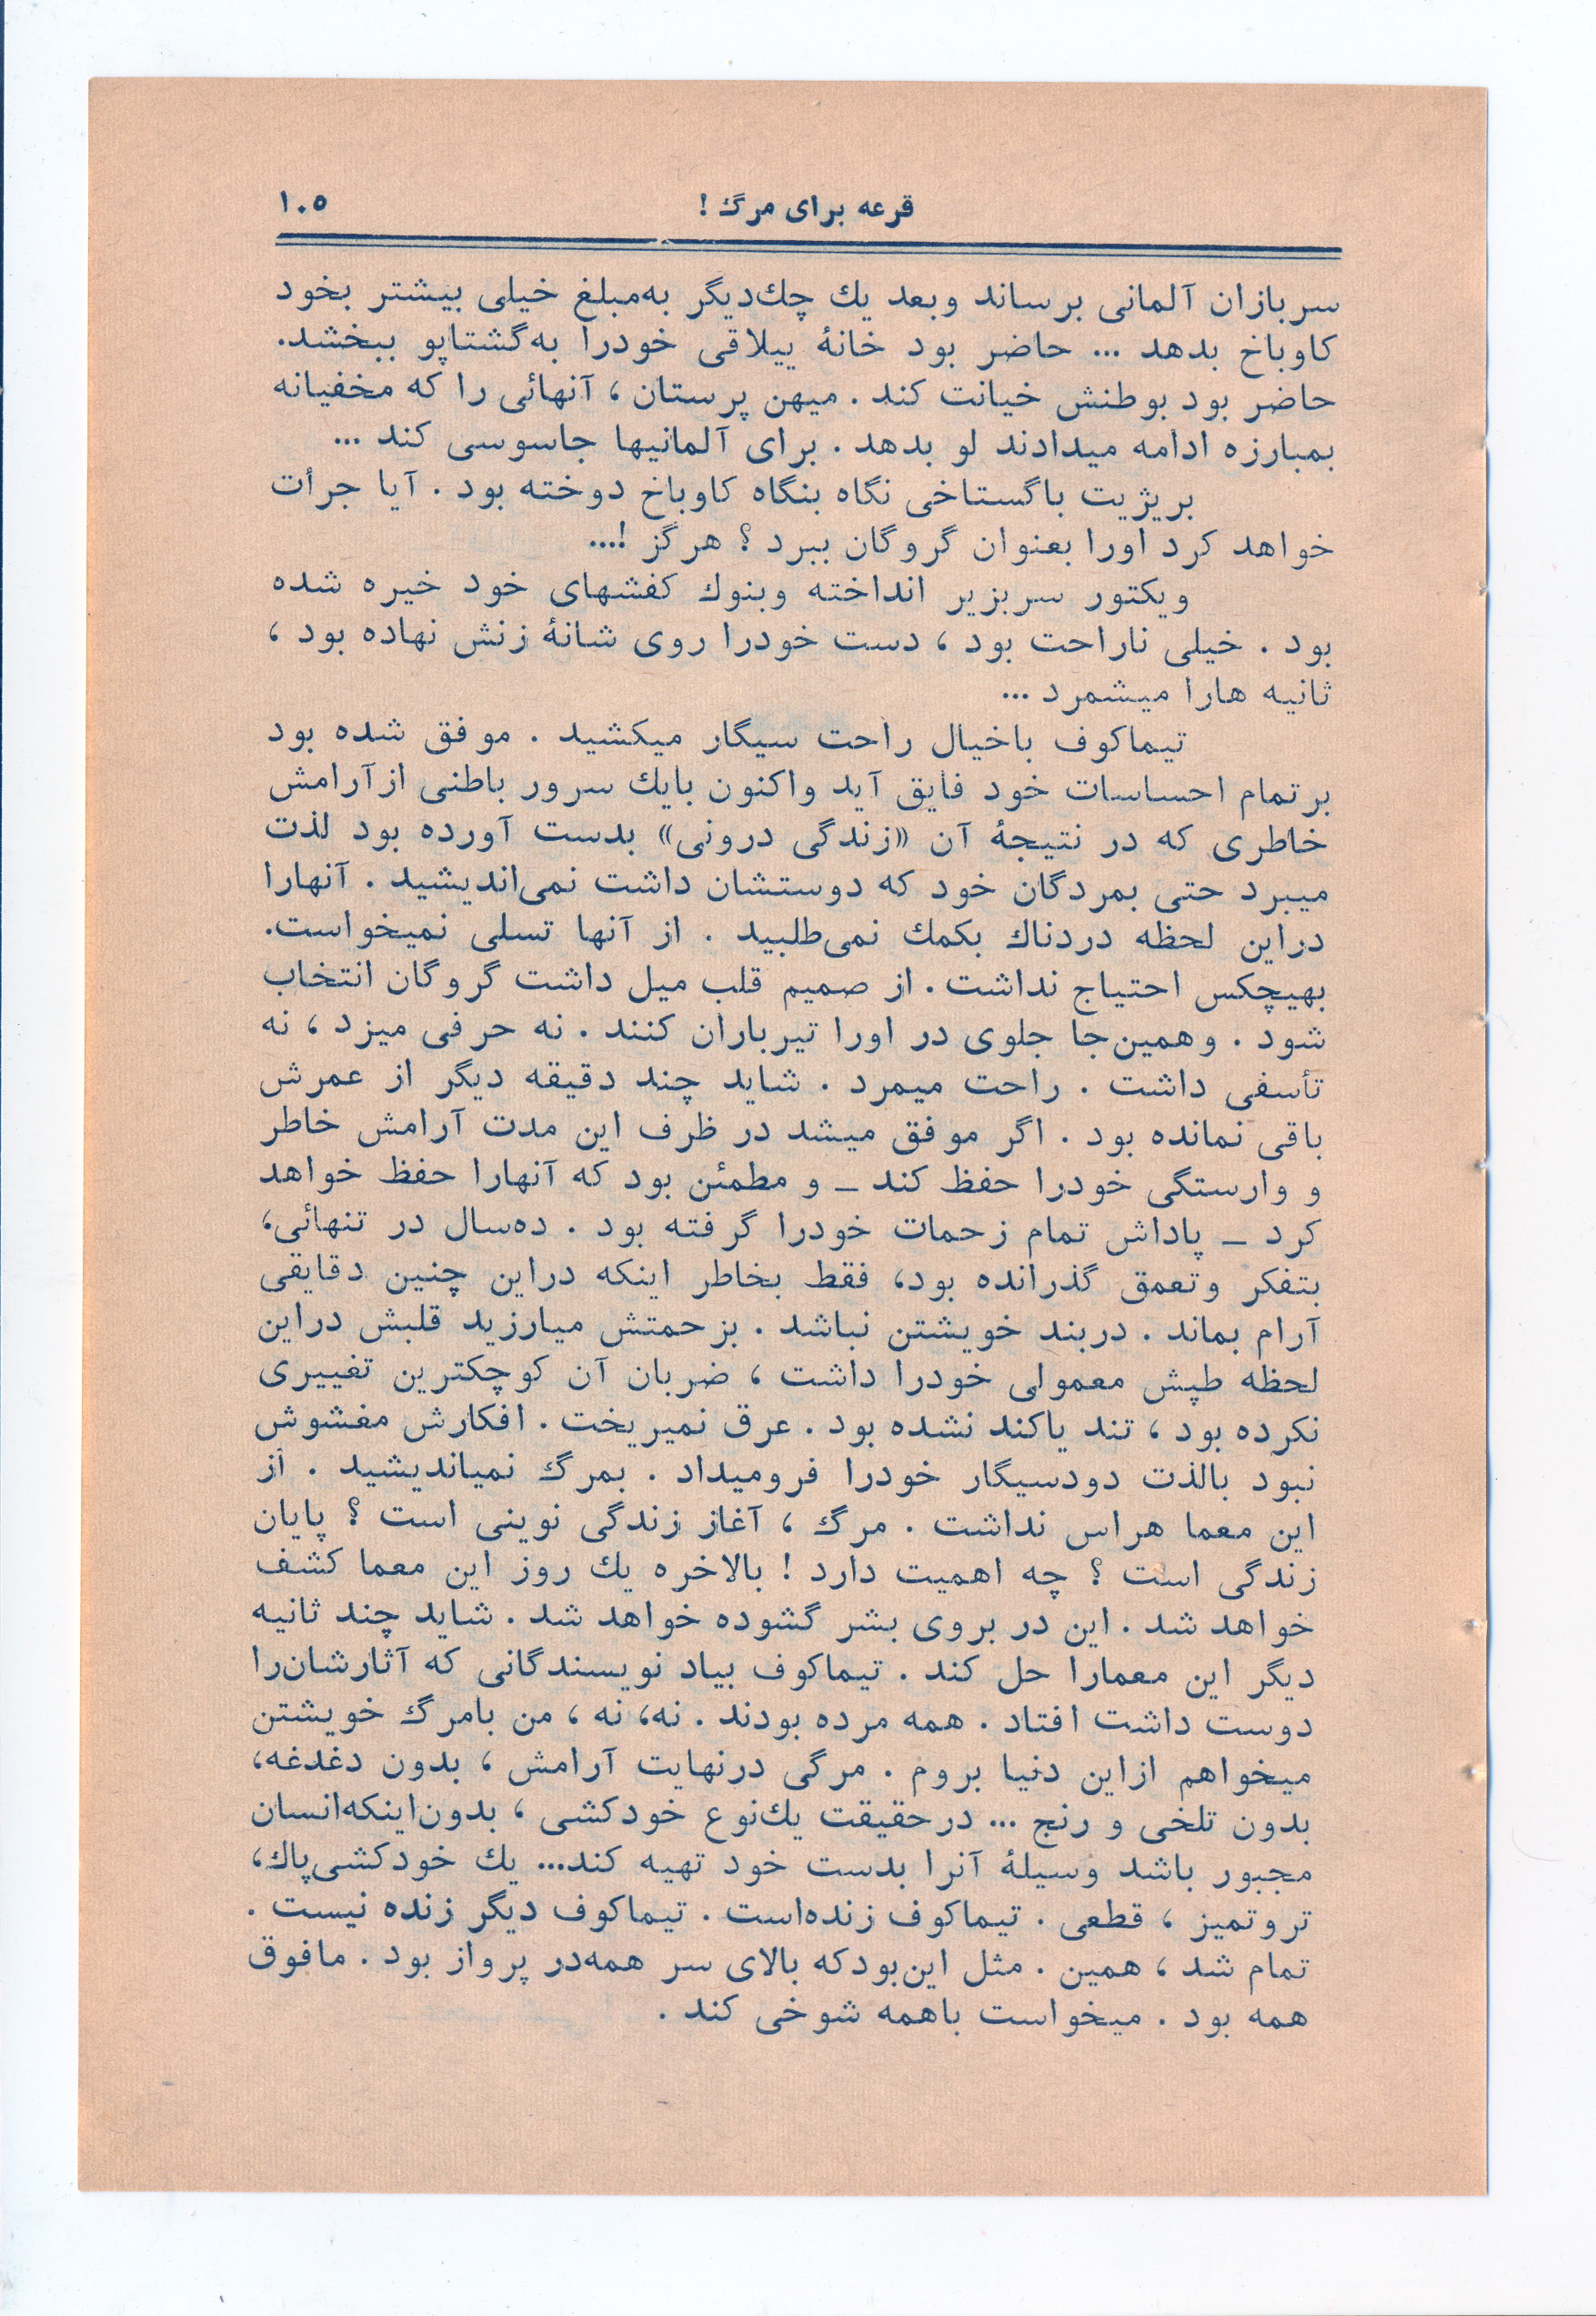 قرعه برای مرگ ! ۱۰۵
سربازان آلمانی برساند وبعد یك چك‌دیگر به‌مبلغ خیلی بیشتر بخود
کاوباخ بدهد ... حاضر بود خانهٔ ییلاقی خودرا به‌گشتاپو ببخشد.
حاضر بود بوطنش خیانت کند . میهن پرستان ، آنهائی را که مخفیانه
بمبارزه ادامه میدادند لو بدهد . برای آلمانیها جاسوسی کند ...
بریژیت باگستاخی نگاه بنگاه کاوباخ دوخته بود . آیا جرأت
خواهد کرد اورا بعنوان گروگان ببرد ؟ هرگز !...
ویکتور سربزیر انداخته وبنوك کفشهای خود خیره شده
بود . خیلی ناراحت بود ، دست خودرا روی شانهٔ زنش نهاده بود ،
ثانیه هارا میشمرد ...
تیماکوف باخیال راحت سیگار میکشید . موفق شده بود
برتمام احساسات خود فایق آید واکنون بایك سرور باطنی ازآرامش
خاطری که در نتیجهٔ آن «زندگی درونی» بدست آورده بود لذت
میبرد حتی بمردگان خود که دوستشان داشت نمی‌اندیشید . آنهارا
دراین لحظه دردناك بکمك نمی‌طلبید . از آنها تسلی نمیخواست.
بهیچکس احتیاج نداشت . از صمیم قلب میل داشت گروگان انتخاب
شود . وهمین‌جا جلوی در اورا تیرباران کنند . نه حرفی میزد ، نه
تأسفی داشت . راحت میمرد . شاید چند دقیقه دیگر از عمرش
باقی نمانده بود . اگر موفق میشد در ظرف این مدت آرامش خاطر
و وارستگی خودرا حفظ کند ـ و مطمئن بود که آنهارا حفظ خواهد
کرد ـ پاداش تمام زحمات خودرا گرفته بود . ده‌سال در تنهائی،
بتفکر وتعمق گذرانده بود، فقط بخاطر اینکه دراین چنین دقایقی
آرام بماند . دربند خویشتن نباشد . بزحمتش میارزید قلبش دراین
لحظه طپش معمولی خودرا داشت ، ضربان آن کوچکترین تغییری
نکرده بود ، تند یاکند نشده بود . عرق نمیریخت . افکارش مغشوش
نبود بالذت دودسیگار خودرا فرومیداد . بمرگ نمیاندیشید . از
این معما هراس نداشت . مرگ ، آغاز زندگی نوینی است ؟ پایان
زندگی است ؟ چه اهمیت دارد ! بالاخره یك روز این معما کشف
خواهد شد . این در بروی بشر گشوده خواهد شد . شاید چند ثانیه
دیگر این معمارا حل کند . تیماکوف بیاد نویسندگانی که آثارشان‌را
دوست داشت افتاد . همه مرده بودند . نه، نه ، من بامرگ خویشتن
میخواهم ازاین دنیا بروم . مرگی درنهایت آرامش ، بدون دغدغه،
بدون تلخی و رنج ... درحقیقت یك‌نوع خودکشی ، بدون‌اینکه‌انسان
مجبور باشد وسیلهٔ آنرا بدست خود تهیه کند... یك خودکشی‌پاك،
تروتمیز ، قطعی . تیماکوف زنده‌است . تیماکوف دیگر زنده نیست .
تمام شد ، همین . مثل این‌بودکه بالای سر همه‌در پرواز بود . مافوق
همه بود . میخواست باهمه شوخی کند .